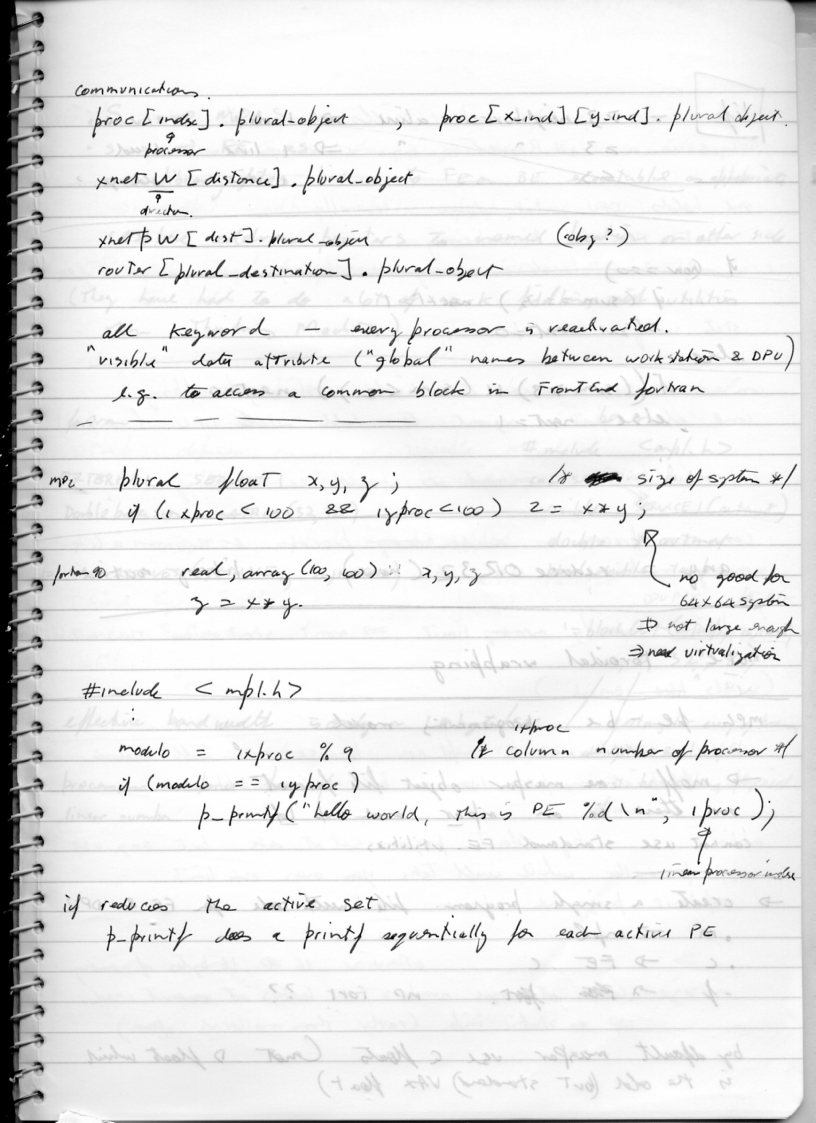 communications.
proc [index]. plural-object , proc [x_ind] [y_ind]. plural object.
processor
xnet W [distance]. plural_object
direction.
xnet p W [dist]. plural_object (obj ?)
router [plural_destination]. plural-object
all keyword — every processor is reactivated.
"visible" data attribute ("global" names between workstation & DPU)
e.g. to access a common block in FrontEnd fortran
mpl plural float x, y, z ; /* size of system */
if (ixproc < 100 && iyproc < 100) z = x*y ;
fortran 90 real, array (100, 100) :: x, y, z
z = x*y.
no good for
64x64 system
⇒ not large enough
⇒ need virtualization
#include <mpl.h>
⋮
ixproc
modulo = ixproc % 9 /* column number of processor */
if (modulo == iyproc)
p_printf ("hello world, this is PE %d \n", iproc);
linear processor index
if reduces the active set
p-printf does a printf sequentially for each active PE